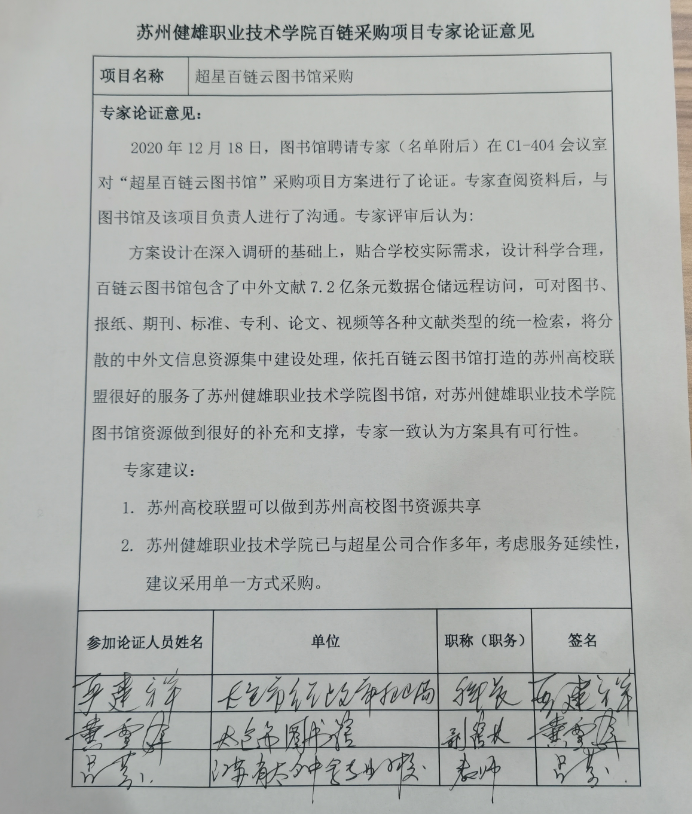 苏州健雄职业技术学院百链采购项目专家论证意见
项目名称 超星百链云图书馆采购
专家论证意见：
2020 年 12 月 18 日，图书馆聘请专家（名单附后）在 C1-404 会议室
对“超星百链云图书馆”采购项目方案进行了论证。专家查阅资料后，与
图书馆及该项目负责人进行了沟通。专家评审后认为:
方案设计在深入调研的基础上，贴合学校实际需求，设计科学合理，
百链云图书馆包含了中外文献 7.2 亿条元数据仓储远程访问，可对图书、
报纸、期刊、标准、专利、论文、视频等各种文献类型的统一检索，将分
散的中外文信息资源集中建设处理，依托百链云图书馆打造的苏州高校联
盟很好的服务了苏州健雄职业技术学院图书馆，对苏州健雄职业技术学院
图书馆资源做到很好的补充和支撑，专家一致认为方案具有可行性。
专家建议：
1. 苏州高校联盟可以做到苏州高校图书资源共享
2. 苏州健雄职业技术学院已与超星公司合作多年，考虑服务延续性，
建议采用单一方式采购。
参加论证人员姓名 单位 职称（职务） 签名
太仓市行政审批局
太仓市图书馆 副馆长
教师